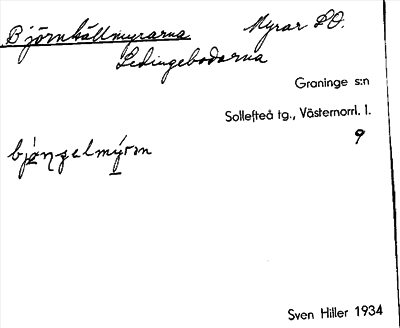 Björnkällmyrarna Myrar SO.
Ledingebodarna
Graninge s:n
Sollefteå tg., Västernorrl. l.
9
Sven Hiller 1934